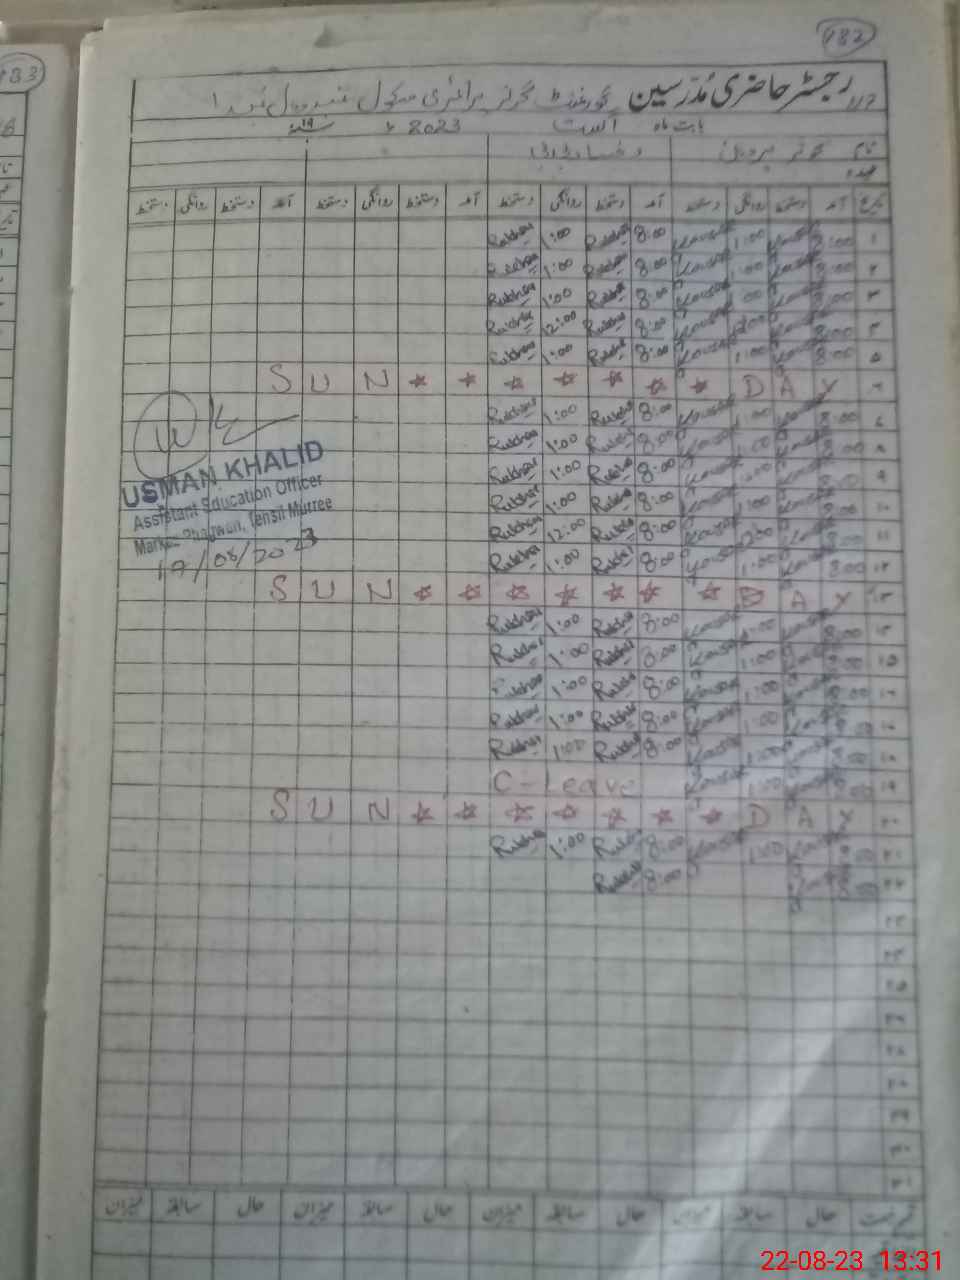 183
182
رجسٹر حاضری مُدرّسین گورنمنٹ گرلز پرائمری سکول
بابت ماہ اگست 2023ء ۱۹
نام کوثر پروین رخسانہ بی بی
عہدہ
تاریخ آمد دستخط روانگی دستخط آمد دستخط روانگی دستخط آمد دستخط روانگی دستخط آمد دستخط روانگی دستخط
۱ 8:00 Kausar 1:00 Kausar 8:00 Rukhsa 1:00 Rukhsa
۲ 8:00 Kausar 1:00 Kausar 8:00 Rukhsa 1:00 Rukhsa
۳ 8:00 Kausar 1:00 Kausar 8:00 Rukhsa 1:00 Rukhsa
۴ 8:00 Kausar 12:00 Kausar 8:00 Rukhsa 12:00 Rukhsa
۵ 8:00 Kausar 1:00 Kausar 8:00 Rukhsa 1:00 Rukhsa
۶ S U N ☆ ☆ ☆ ☆ ☆ ☆ ☆ D A Y
۷ 8:00 Kausar 1:00 Kausar 8:00 Rukhsa 1:00 Rukhsa
۸ 8:00 Kausar 1:00 Kausar 8:00 Rukhsa 1:00 Rukhsa
۹ 8:00 Kausar 1:00 Kausar 8:00 Rukhsa 1:00 Rukhsa
۱۰ 8:00 Kausar 1:00 Kausar 8:00 Rukhsa 1:00 Rukhsa
۱۱ 8:00 Kausar 12:00 Kausar 8:00 Rukhsa 12:00 Rukhsa
۱۲ 8:00 Kausar 1:00 Kausar 8:00 Rukhsa 1:00 Rukhsa
USMAN KHALID
Assistant Education Officer
Markaz Phagwari, Tehsil Murree
17/08/2023
۱۳ S U N ☆ ☆ ☆ ☆ ☆ ☆ ☆ D A Y
۱۴ 8:00 Kausar 1:00 Kausar 8:00 Rukhsa 1:00 Rukhsa
۱۵ 8:00 Kausar 1:00 Kausar 8:00 Rukhsa 1:00 Rukhsa
۱۶ 8:00 Kausar 1:00 Kausar 8:00 Rukhsa 1:00 Rukhsa
۱۷ 8:00 Kausar 1:00 Kausar 8:00 Rukhsa 1:00 Rukhsa
۱۸ 8:00 Kausar 1:00 Kausar 8:00 Rukhsa 1:00 Rukhsa
۱۹ 8:00 Kausar 1:00 Kausar C-Leave
۲۰ S U N ☆ ☆ ☆ ☆ ☆ ☆ ☆ D A Y
۲۱ 8:00 Kausar 1:00 Kausar 8:00 Rukhsa 1:00 Rukhsa
۲۲ 8:00 Kausar 8:00 Rukhsa
۲۳
۲۴
۲۵
۲۶
۲۸
۲۹
۳۰
۳۱
قسم رخصت حال سابقہ میزان حال سابقہ میزان حال سابقہ میزان حال سابقہ میزان
22-08-23 13:31